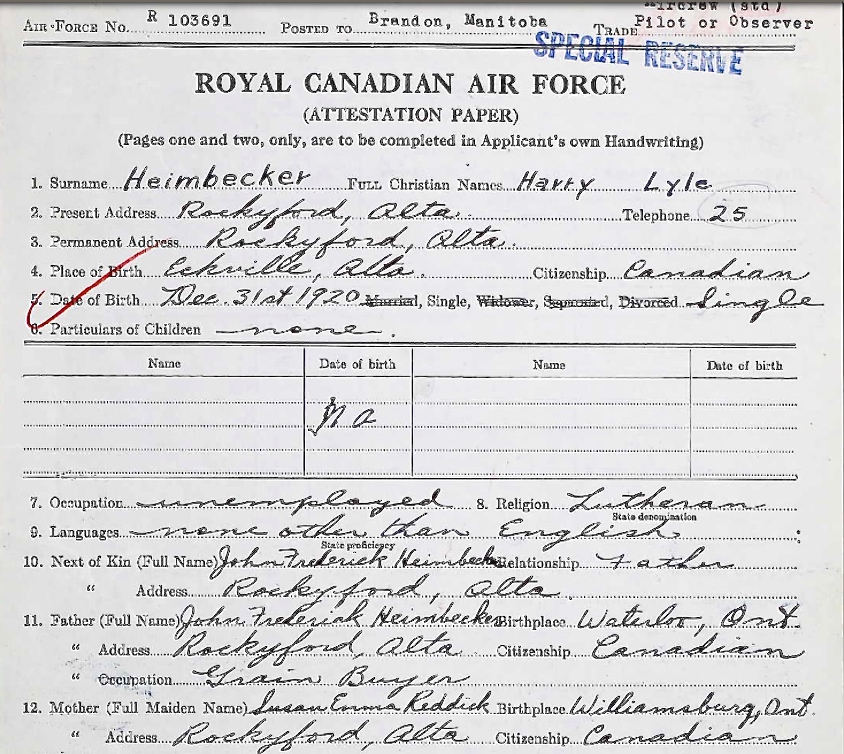 Aircrew (std)
AIR FORCE No. R 103691 POSTED TO Brandon, Manitoba TRADE Pilot or Observer
SPECIAL RESERVE
ROYAL CANADIAN AIR FORCE
(ATTESTATION PAPER)
(Pages one and two, only, are to be completed in Applicant's own Handwriting)
1. Surname Heimbecker FULL Christian Names Harry Lyle
2. Present Address Rockyford, Alta. Telephone 25
3. Permanent Address Rockyford, Alta.
4. Place of Birth Eckville, Alta. Citizenship Canadian
5. Date of Birth Dec. 31st 1920 Married, Single, Widower, Separated, Divorced Single
6. Particulars of Children none.
Name Date of birth Name Date of birth
N a
7. Occupation unemployed 8. Religion Lutheran
State denomination
9. Languages none other than English
State proficiency
10. Next of Kin (Full Name) John Frederick Heimbecker Relationship Father
" Address Rockyford, Alta.
11. Father (Full Name) John Frederick Heimbecker Birthplace Waterloo, Ont.
" Address Rockyford, Alta Citizenship Canadian
" Occupation Grain Buyer
12. Mother (Full Maiden Name) Susan Emma Reddick Birthplace Williamsburg, Ont.
" Address Rockyford, Alta Citizenship Canadian